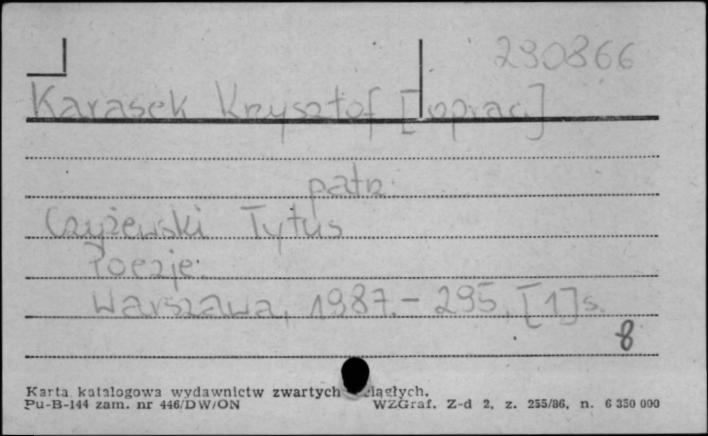 290866
Karasek Krzysztof [oprac.]
patrz:
Czyżewski Tytus
Poezje.
Warszawa, 1987. - 295, [1] s.
8
Karta katalogowa wydawnictw zwartych
Pu-B-144 zam. nr 446/DW/ON WZGraf. Z-d 2, z. 255/86, n. 6 350 000